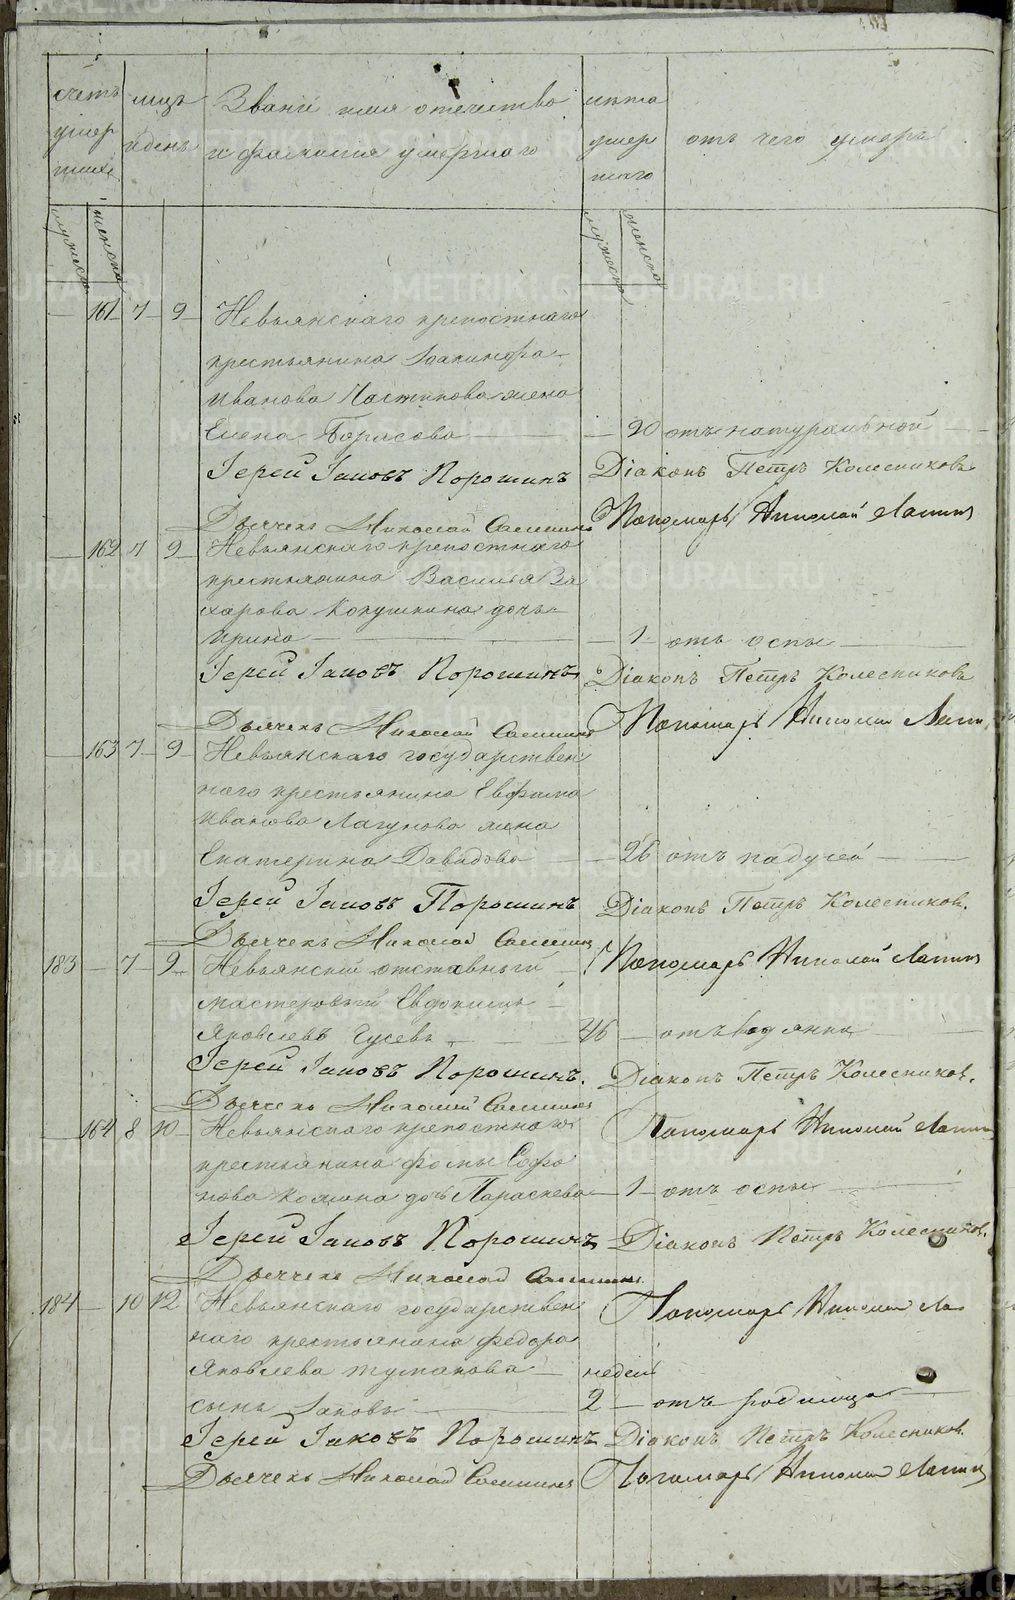 счетъ умер шихъ
мцъ и день
Званіе имя отечество
и фамилія умершаго
лета умер шаго
отъ чего умеръ
мужеска
женска
мужеска
женска
161 7 9 Невьянскаго крепостнаго
крестьянина Іоакинфа
Иванова жена
Елена Борисова 20 отъ натуральной
Іерей Іаковъ Порошинъ Діаконъ Петръ Колесниковъ
Дьячекъ Николай Пономарь Николай Лапинъ
162 7 9 Невьянскаго крепостнаго
крестьянина Василья За
харова Кокушкина дочь
Ирина 1 отъ оспы
Іерей Іаковъ Порошинъ Діаконъ Петръ Колесниковъ
Дьячекъ Николай Пономарь Николай Лапин
163 7 9 Невьянскаго государствен
наго крестьянина Евфима
Иванова Лагунова жена
Екатерина Давидова 26 отъ падучей
Іерей Іаковъ Порошинъ Діаконъ Петръ Колесников.
Дьячекъ Николай Пономарь Николай Лапинъ
183 7 9 Невьянскій отставный
мастеровый Евдокимъ
Яковлевъ Гусевъ 46 отъ водянки
Іерей Іаковъ Порошинъ. Діаконъ Петръ Колесников.
Дьячекъ Николай Пономарь Николай Лапинъ
164 8 10 Невьянскаго крепостнаго
крестьянина Фомы Софо
нова дочь Параскева 1 отъ оспы
Іерей Іаковъ Порошинъ Діаконъ Петръ Колесников.
Дьячекъ Николай Пономарь Николай Ла
184 10 12 Невьянскаго государствен
наго крестьянина Федора
Яковлева Туманова недель
сынъ Іаковъ 2 отъ родимца
Іерей Іаковъ Порошинъ Діаконъ Петръ Колесников.
Дьячекъ Николай Пономарь Николай Лапинъ
METRIKI.GASO-URAL.RU